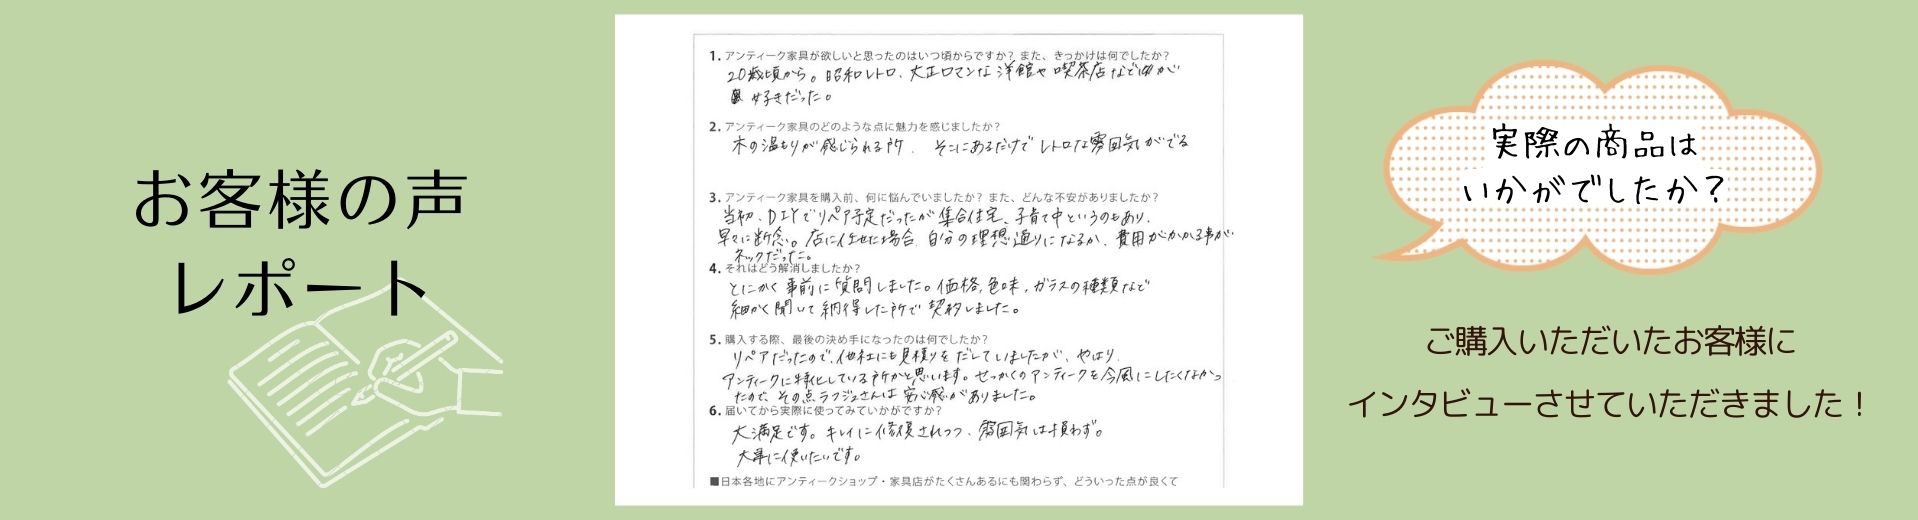 お客様の声
レポート
1. アンティーク家具が欲しいと思ったのはいつ頃からですか？また、きっかけは何でしたか？
20歳頃から。昭和レトロ、大正ロマンな洋館や喫茶店など
好きだった。
2. アンティーク家具のどのような点に魅力を感じましたか？
木の温もりが感じられる所、そこにあるだけでレトロな雰囲気がでる
3. アンティーク家具を購入前、何に悩んでいましたか？また、どんな不安がありましたか？
当初、DIYでリペア予定だったが集合住宅、子育て中というのもあり、
早々に断念。店に任せた場合、自分の理想通りになるか、費用がかかる事が
ネックだった。
4. それはどう解消しましたか？
とにかく事前に質問しました。価格、色味、ガラスの種類など
細かく聞いて納得した所で契約しました。
5. 購入する際、最後の決め手になったのは何でしたか？
リペアだったので、他社にも見積りをだしていましたが、やはり、
アンティークに特化している所かと思います。せっかくのアンティークを今風にしたくなかっ
たので、その点ラフジュさんは安心感がありました。
6. 届いてから実際に使ってみていかがですか？
大満足です。キレイに修復されつつ、雰囲気は損わず。
大事に使いたいです。
■日本各地にアンティークショップ・家具店がたくさんあるにも関わらず、どういった点が良くて
実際の商品は
いかがでしたか？
ご購入いただいたお客様に
インタビューさせていただきました！